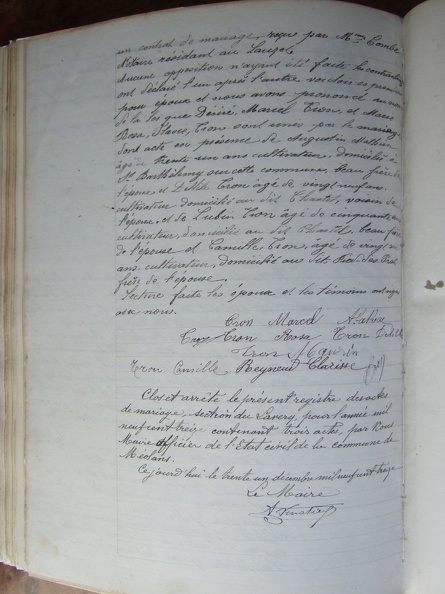 un contrat de mariage, reçu par Mtre Combe
Notaire résidant au Lauzet
Aucune opposition n'ayant été faite les contractants
ont déclaré l'un après l'autre vouloir se prendre
pour époux et nous avons prononcé au nom
de la loi que Désiré, Marcel Tron, et Marie
Rosa, Tron sont unis par le mariage
Dont acte en présence de Augustin
âgé de trente un ans cultivateur, domicilié à
St Barthélemy sur cette commune, beau frère de
l'épouse, et d' Tron âgé de vingt neuf ans
cultivateur domicilié au dit voisin de
l'épouse, et de Lubin Tron âgé de cinquante
cultivateur, domicilié au dit beau
de l'épouse et Camille Tron, âgé de vingt
ans cultivateur, domicilié au dit
frère de l'épouse.
Lecture faite les époux et les témoins ont signé
avec nous.
Tron Marcel
Tron Tron Rosa Tron
Tron
Tron Camille Reyneud Clarisse
Clos et arrêté le présent registre des actes
de mariage, section du Laverq, pour l'année mil
neuf cent treize contenant trois actes, par Nous
Maire officier de l'Etat civil de la commune de
Méolans.
Ce jourd'hui le trente un décembre mil neuf cent treize
Le Maire